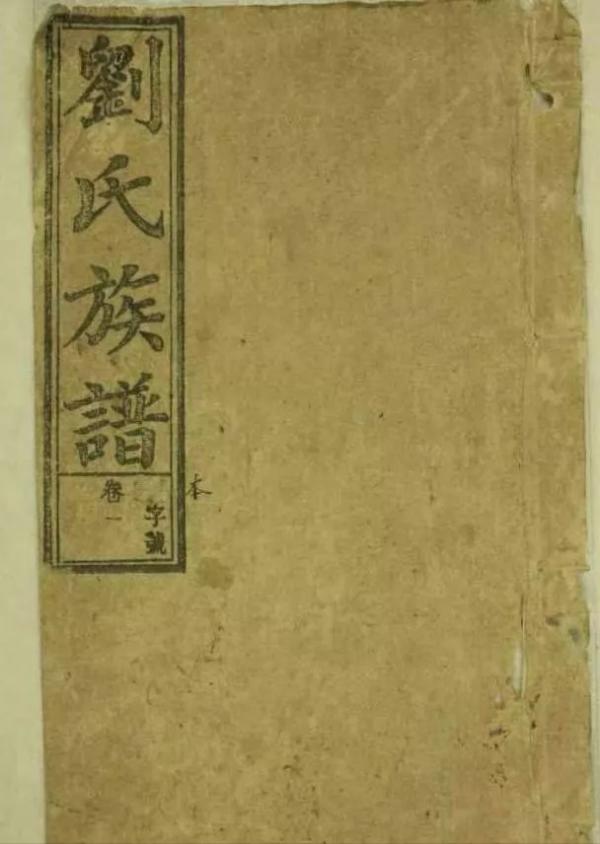 劉氏族譜
卷一
字號
本